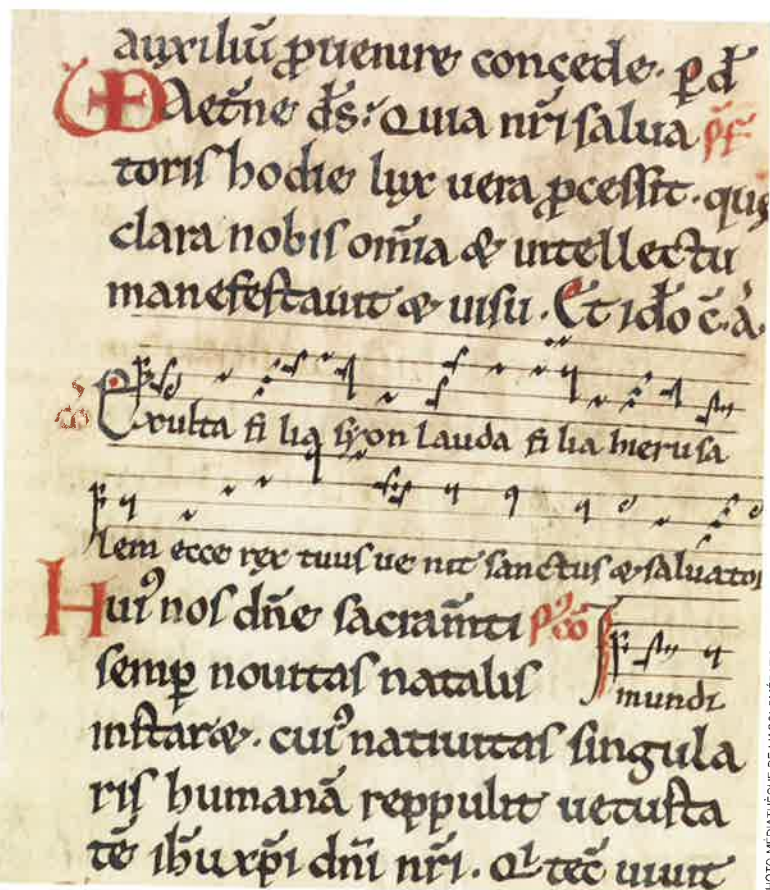 auxiliū ꝓuenire concede. ꝑ d̄
VD Aet̄ne d̄s. Quia nr̄i salua p̄f
toris hodie lux uera ꝓcessit. quę
clara nobis om̄ia & intellectu
manefestauit & uisu. Et id̄o c̄ ā.
Exulta filia syon lauda filia hierusa
lem ecce rex tuus uenit sanctus & saluator
Huiꝰ nos dn̄e sacram̄ti pꝰcō
semꝑ nouitas natalis
mundi
instaret. cuiꝰ natiuitas singula
ris humanā reppulit uetusta
tē ih̄u xp̄i dn̄i nr̄i. Q¹ tec̄ uiuit